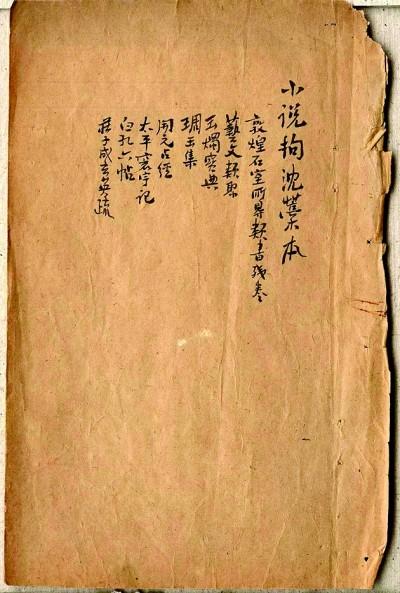 小说拘沈本
敦煌石室所㝵類書残卷
藝文類聚
玉燭寶典
琱玉集
開元占經
太平寰宇記
白孔六帖
莊子成玄英疏